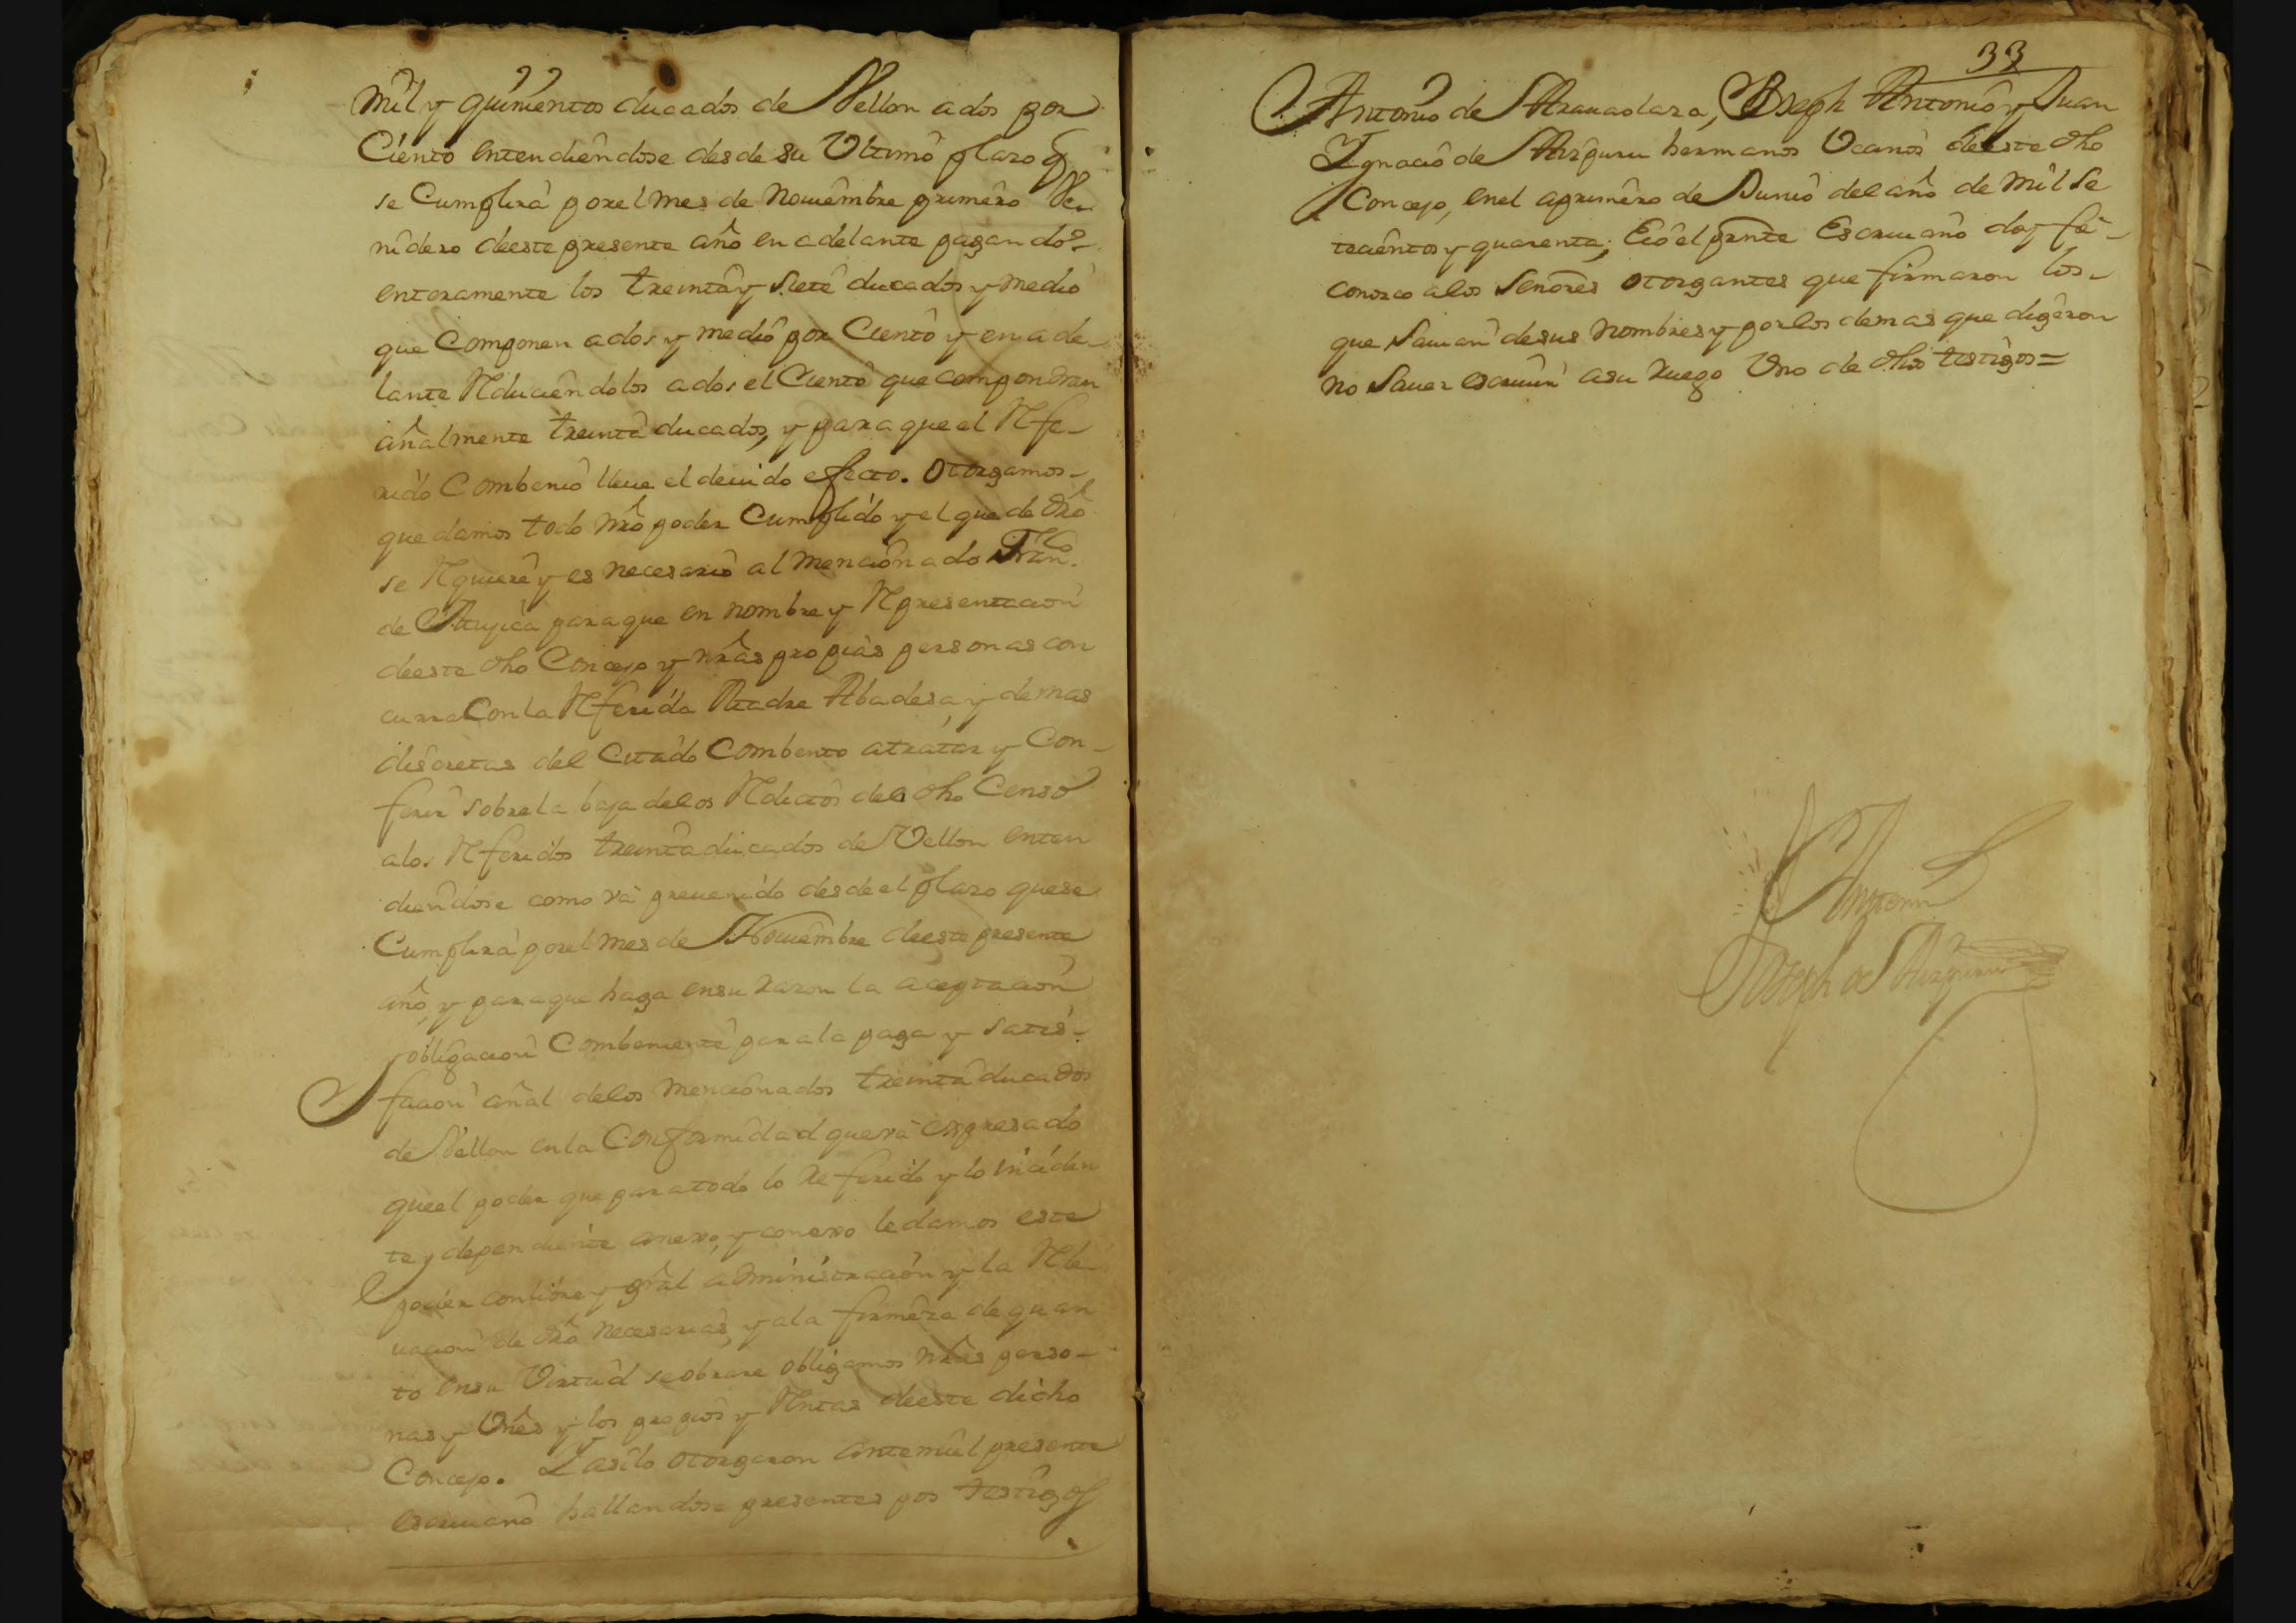 mil y quinientos ducados de Vellon ados por
Ciento entendiendose desde su Ultimo plazo q
se Cumplira por el mes de Nouiembre primero Ve
nidero deeste presente año en adelante pagandos
enteramente los treinta y siete ducados y medio
que Componen ados y medio por Ciento y en ade
lante Reduciendolos ados el Ciento que compondran
añalmente treinta ducados, y para que el Refe
rido Combenio lleue el deuido efecto. Otorgamos
que damos todo nrô poder Cumplido y el que de drô
se Requiere y es necesario al mencionado Franco
de Mugica para que en nombre y Representacion
deeste dho Concejo y nrâs propias personas con
curra Con la Referida Madre Abadesa y demas
discretas del Citado Combento atratar y Con
ferir sobre la baja delos Reditos del dho Censo
alos Referidos treinta ducados de Vellon enten
diendose como va preuenido desde el plazo que se
Cumplira por el mes de Nouiembre deeste presente
año, y para que haga en su razon la aceptacion
y obligacion Combeniente para la paga y satis
facion añal delos mencionados treinta ducados
de Vellon en la Conformidad que va expresado
que el poder que para todo lo Referido y lo inciden
te y dependiente anexo, y conexo le damos este
poder con libre y grâl administracion y la Rele
uacion de drô necesarias, y a la firmeza de quan
to en su Virtud se obrare obligamos nrâs perso
nas y Vnês y los propios y Rentas deeste dicho
Concejo. Y asi lo otorgaron ante mi el presente
escriuano hallandose presentes por testigos
33
Antonio de Arauaolaza, Joseph Antonio y Juan
Ignacio de Aizpuru hermanos Vecinos deeste dho
Concejo, en el a primero de Junio del año de mil se
tecientos y quarenta; E io el prnte Escriuano doy fe
conozco a los señores otorgantes que firmaron los
que sauian de sus nombres y por los demas que digeron
no sauer escriuir a su ruego Vno de dhos testigos=
Antonio
Joseph de Aizpuru